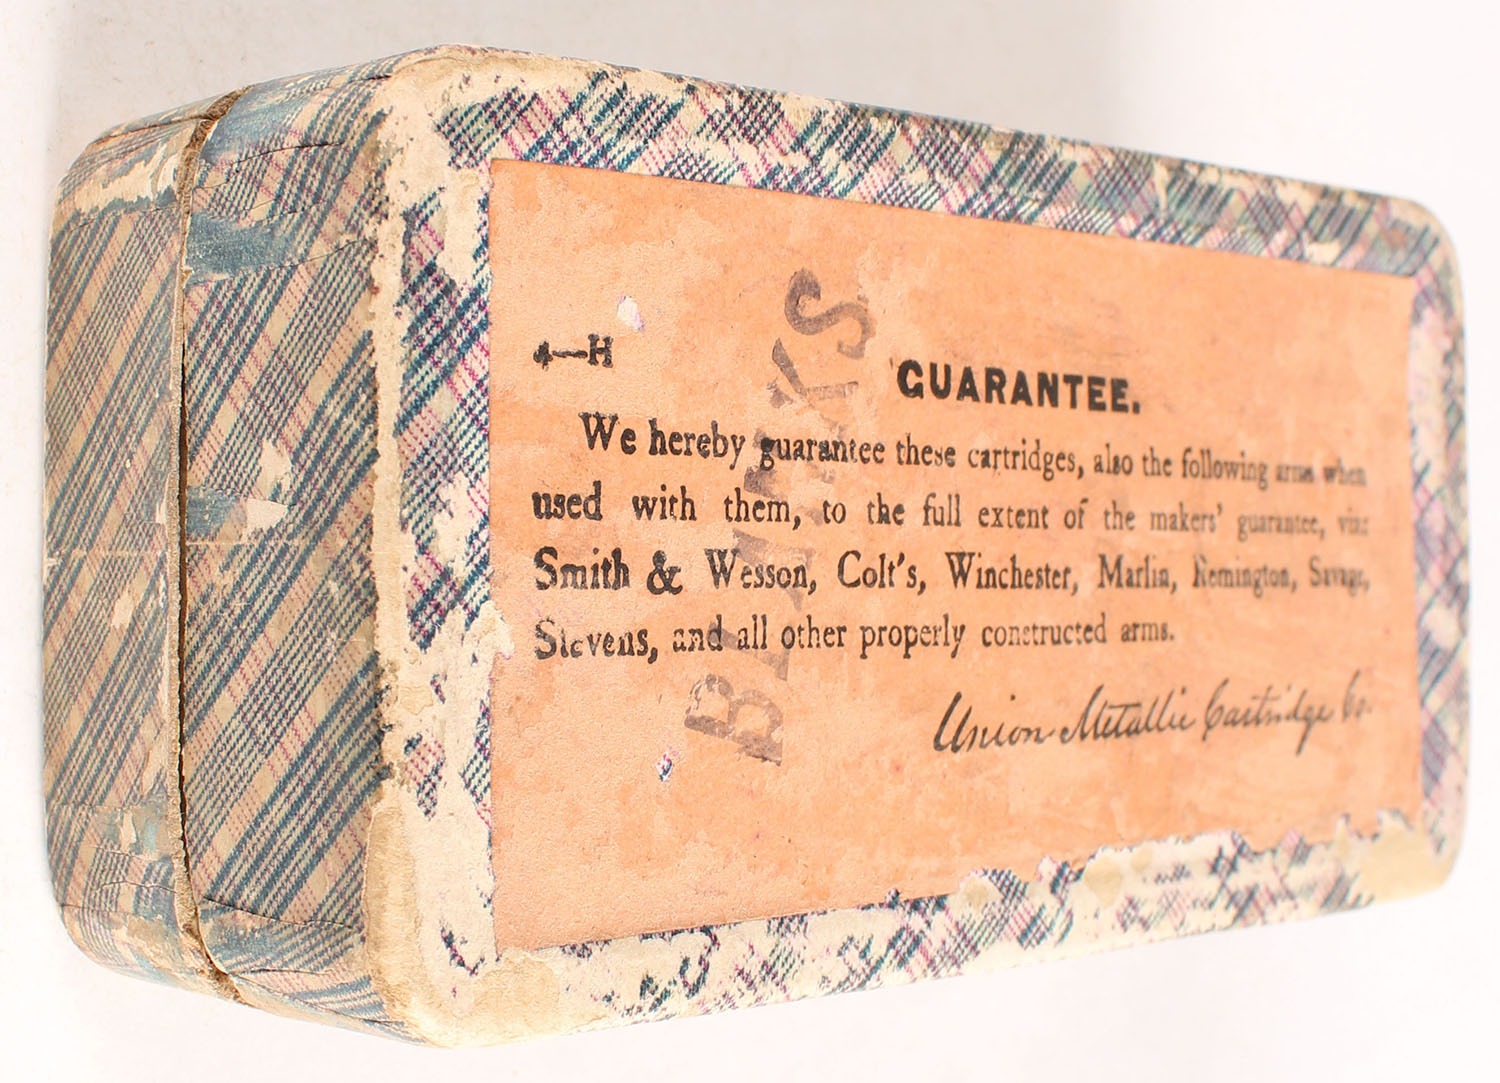 4—H
GUARANTEE.
We hereby guarantee these cartridges, also the following arms when
used with them, to the full extent of the makers' guarantee, viz:
Smith & Wesson, Colt's, Winchester, Marlin, Remington, Savage,
Stevens, and all other properly constructed arms.
Union Metallic Cartridge Co.
BLANKS